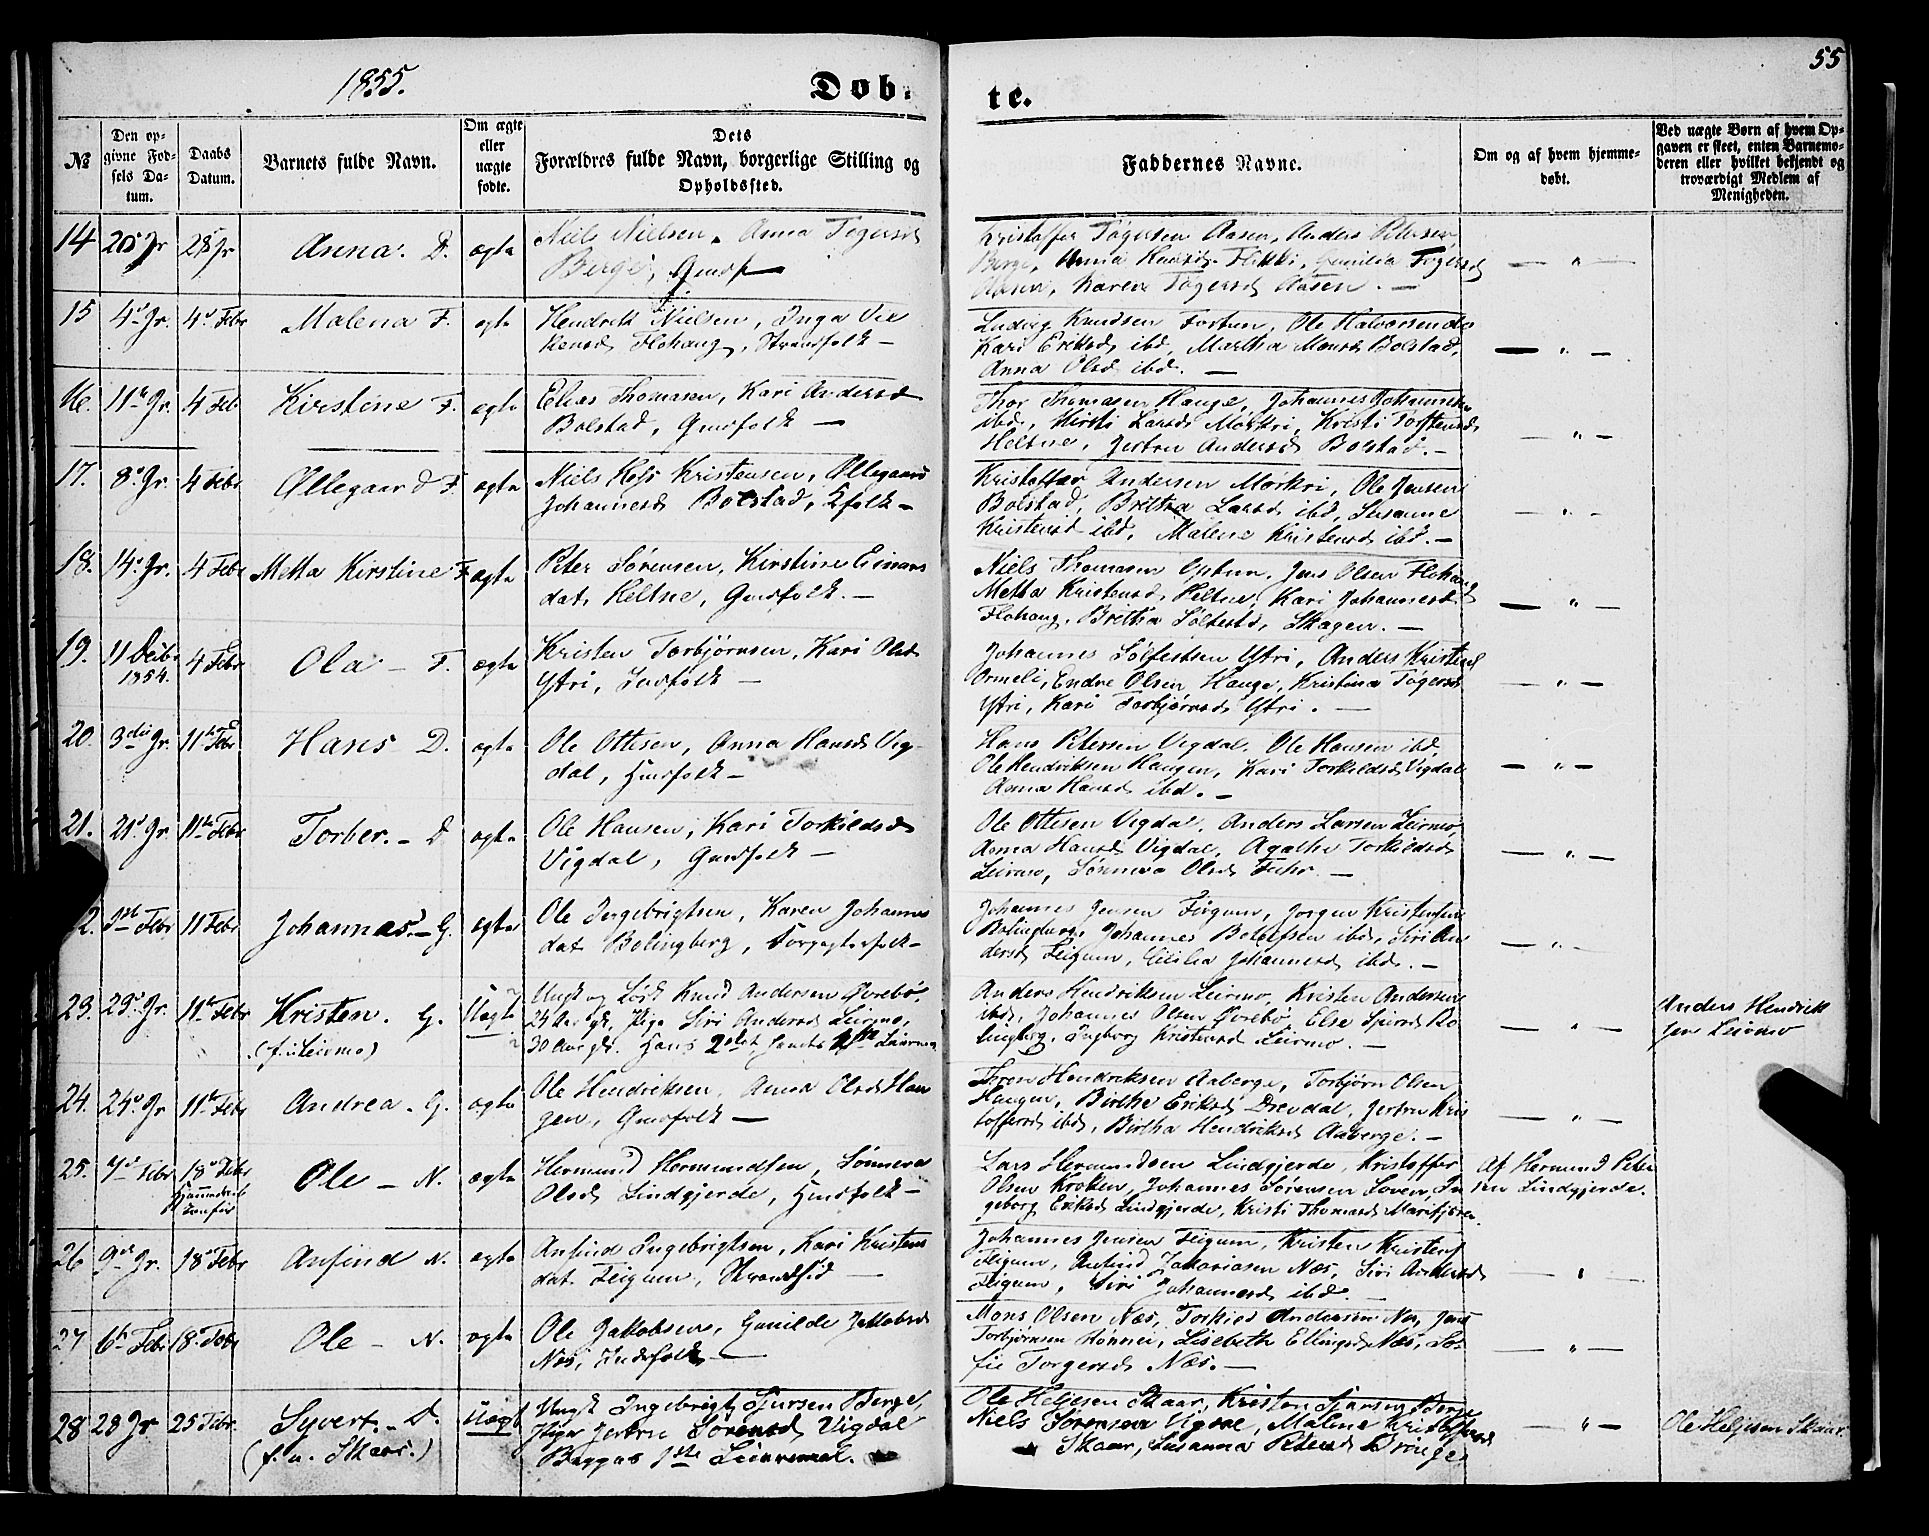 1855.
Døb-
te.
55
№
Den op-
givne Fød-
sels Da-
tum.
Daabs
Datum.
Barnets fulde Navn.
Om ægte
eller
uægte
fødte.
Dets
Forældres fulde Navn, borgerlige Stilling og
Opholdssted.
Faddernes Navne.
Om og af hvem hjemme-
døbt.
Ved uægte Børn af hvem Op-
gaven er skeet, enten Barnemo-
deren eller hvilket bekjendt og
troværdigt Medlem af
Menigheden.
14 28 Jr Anna. D. ægte
Niels Nielsen, Anna Tøgersd
Berge,
Kristoffer Tøgersen Aasen, Anders Petersen
Berge, Anna Flikki, Tøgersd
Aasen, Karen Tøgersd Aasen. —
15 4d Jr. 4d Febr Malena F. ægte
Hendrik Nielsen, Inga
Flohaug, Strandfolk —
Ludvig Knudsen Fortun, Ole Halvorsen do
Kari Eriksd ibd, Martha Monsd Bolstad,
Anna Olsd ibd. —
16. 11te Jr. 4 Feb Kirstine F. ægte
Elias Thomasen, Kari Andersd
Bolstad, Gmdfolk —
Thor Thomasen Hauge, Johannes Johannesen
ibd, Kirsti Larsd Mørkri, Kristi Torstensd
Heltne, Jertru Andersd Bolstad. —
17. 8d Jr. 4 Febr Øllegaard F. ægte
Niels Kristensen, Øllegaard
Johannesd Bolstad, —
Kristoffer Andersen Mørkri, Ole Jensen
Bolstad, Brittha Larsd ibd, Susanne
Kristensd ibd, Malene Kristensd ibd. —
18. 14d Jr. 4 Febr Metta Kirstine F. ægte
Peter Sørensen, Kirstine Einars
dat. Heltne, Gmdfolk. —
Niels Thomasen Optun, Jens Olsen Flohaug
Metta Kristensd Heltne, Kari Johannesd
Flohaug, Brittha Skagen. —
19. 11 Decbr 1854. 4 Febr Ola — F. ægte
Kristen Torbjørnsen, Kari Olsd
Ytri, —
Johannes Sølfestsen Ytri, Anders Kristens
Ormeli, Endre Olsen Hauge, Kristina Tøgersd
Ytri, Kari Torbjørnsd Ytri. —
20. 3die Jr. 11te Febr Hans D. ægte
Ole Ottesen, Anna Hansd Vig-
dal, Hmdfolk —
Hans Petersen Vigdal, Ole Hansen ibd,
Ole Hendriksen Haugen, Kari Torkildsd Vigdal
Anna Hansd ibd. —
21. 21d Jr. 11te Febr Torber. — D ægte
Ole Hansen, Kari Torkildsd
Vigdal, Gmdfolk —
Ole Ottesen Vigdal, Anders Larsen Leirmo,
Anna Hansd Vigdal, Agathe Torkildsd
Leirmo, Sønneva Olsd —
2. 1ste Febr 11 Febr Johannas. — G. ægte
Ole Ingebrigtsen, Karen Johannes
dat Bolingberg, —
Johannes Jensen Feigum, Jørgen Kristensen
Bolingberg, Johannes ibd, Siri An
dersd Feigum, Cicilia Johannesd ibd. —
23. 29d Jr. 11te Febr Kristen. G. Uægte
(f. i. Leirmo)
Ungk og Knud Andersen Øvrebø,
Pige Siri Andersd Leirmo,
30 Aar gl. Hans 2det, hendes 1ste Leirmo
Anders Hendriksen Leirmo, Kristen Andersen
ibd, Johannes Olsen Øvrebø, Else Bo
lingberg, Ingborg Kristensd Leirmo. —
Anders Hendrik
sen Leirmo
24. 24d Jr 11te Febr Andrea. G. ægte
Ole Hendriksen, Anna Olsd Hau
gen, Gmdfolk —
Thron Hendriksen Aaberge, Torbjørn Olsen
Haugen, Birthe Eriksd Drevdal, Jertru Kris
toffersd ibd, Birtha Hendriksd Aaberge. —
25. 7d Febr 18d Febr Ole — N. ægte
Hermund Hermundsen, Sønneva
Olsd Lindgjerde, Hmdfolk —
Lars Hermundsen Lindgjerde, Kristoffer
Olsen Kroken, Johannes Sørensen Soven, In
geborg Eriksd Lindgjerde, Kristi Thomasd Marifjøren.
Af Hermund Peter
sen Lindgjerde.
26 9de Jr. 18d Febr Anfind N. ægte
Anfind Ingebrigtsen, Kari Kristens
dat. Feigum, Strandsid —
Johannes Jensen Feigum, Kristen Kristens
Feigum, Anfind Zakariasen Næs, Siri Andersd
Feigum, Siri Johannesd ibd. —
27 6te Febr 18d Febr Ole — N. ægte
Ole Jakobsen, Gunilde Jakobsd
Næs, —
Mons Olsen Næs, Torkied Andersen Næs, Jens
Torbjørnsen Rønnei, Lisebeth Ellingsd Næs, So-
fie Torgersd Næs. —
28 28 Jr 25 Febr Syvert — D. Uægt
(f. u. Skaar.)
Ungk Ingebrigt Sjursen Berge,
Pige Jertru Sørensd Vigdal
Begges 1ste Leiermaal.
Ole Heljesen Skaar, Kristen Sjursen Berge
Niels Sørensen Vigdal, Malene Kristoffersd
Skaar, Susanna Petersd Berge
Ole Heljesen Skaar.